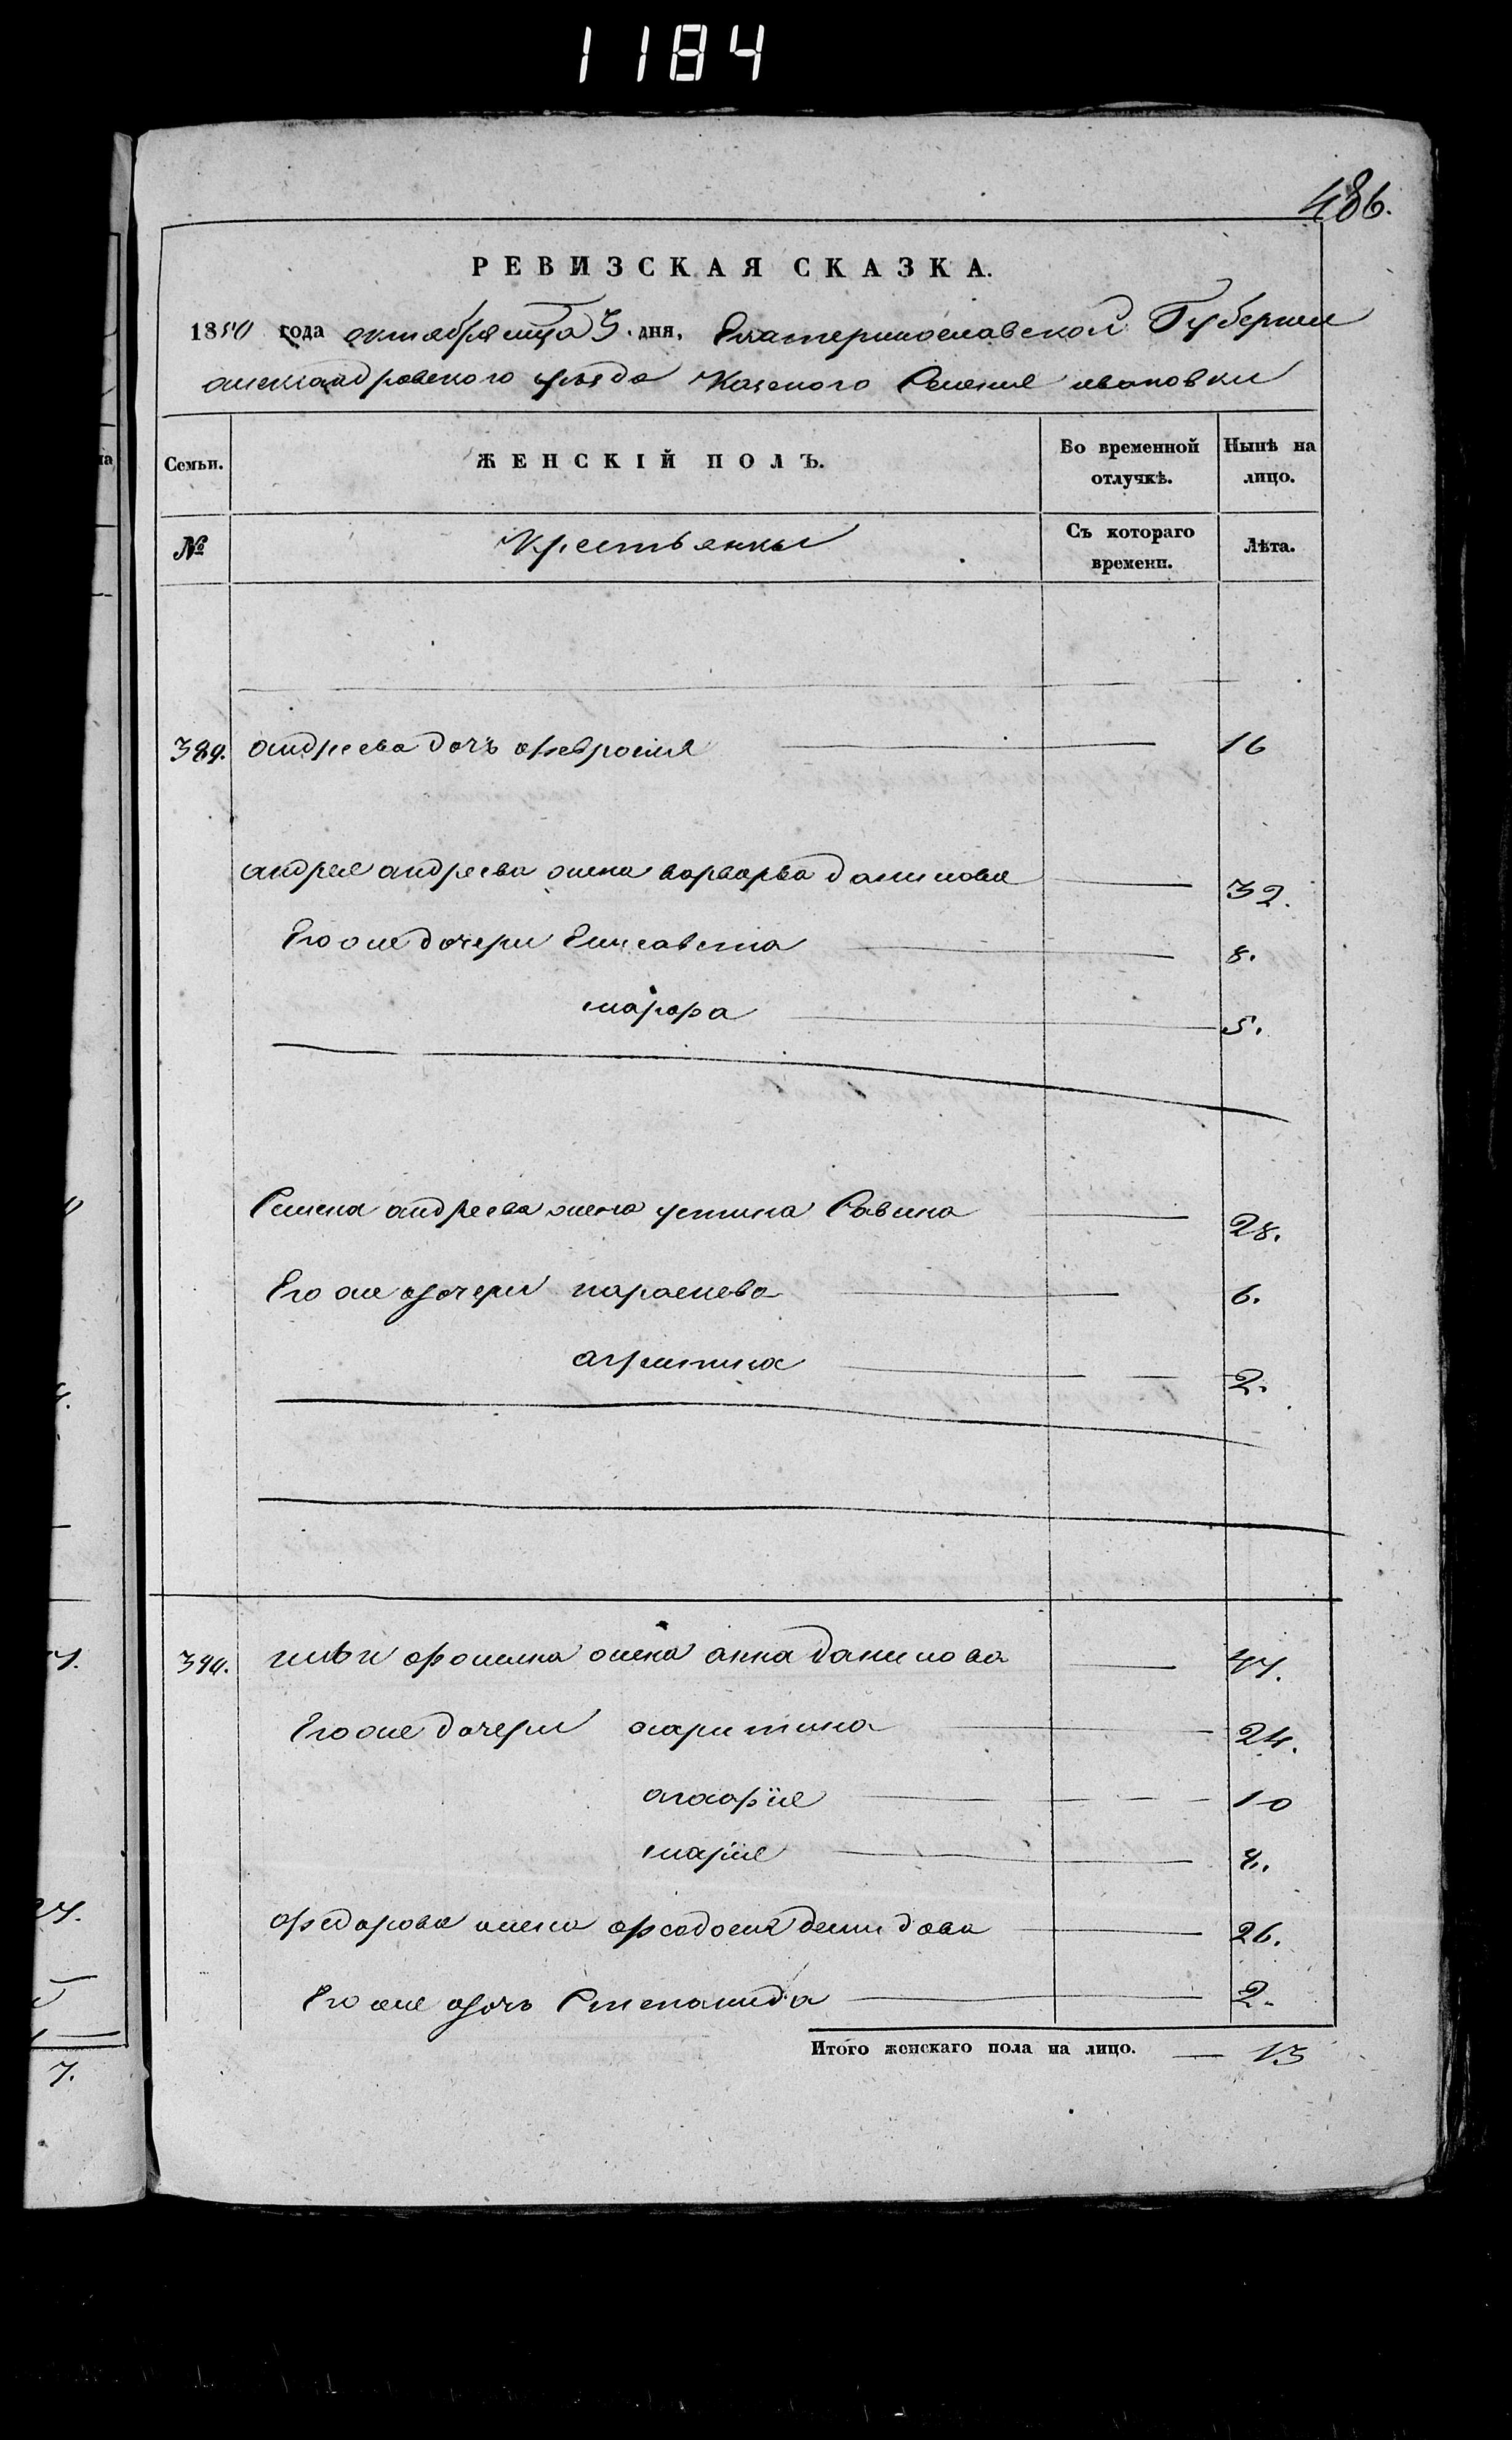 1184
486.
РЕВИЗСКАЯ СКАЗКА.
1850 года октября мца 3 дня, Екатеринославской Губернии
александровского уезда Казеного Селения ивановки
Семьи. ЖЕНСКІЙ ПОЛЪ. Во временной отлучкѣ. Нынѣ на лицо.
№ Крестьянки Съ котораго времени. Лѣта.
389. андреева дочь феврония 16
андрея андреева жена варвара данилова 32.
Его же дочери Елисавета 8.
марфа 5.
Семена андреева жена устина Савина 28.
Его же дочери парасцева 6.
агрипина 2.
390. фомина жена анна данилова 47.
Его же дочери харитина 24.
агафія 10
марія
федорова жена феодосия демидова 26.
Его же дочь Степанида 2.
Итого женскаго пола на лицо. 13